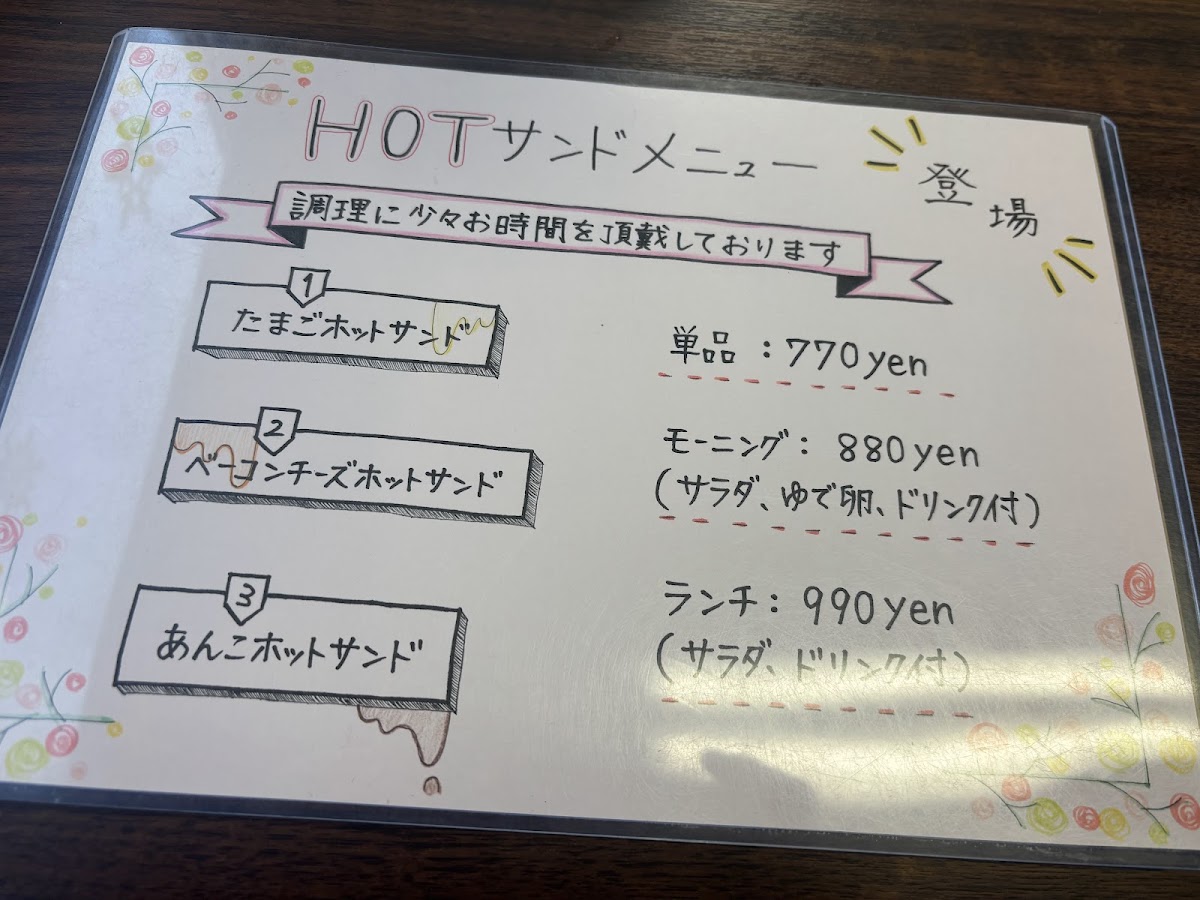 HOTサンドメニュー
登場
調理に少々お時間を頂戴しております
1
たまごホットサンド
単品：770yen
2
ベーコンチーズホットサンド
モーニング：880yen
(サラダ、ゆで卵、ドリンク付)
3
あんこホットサンド
ランチ：990yen
(サラダ、ドリンク付)